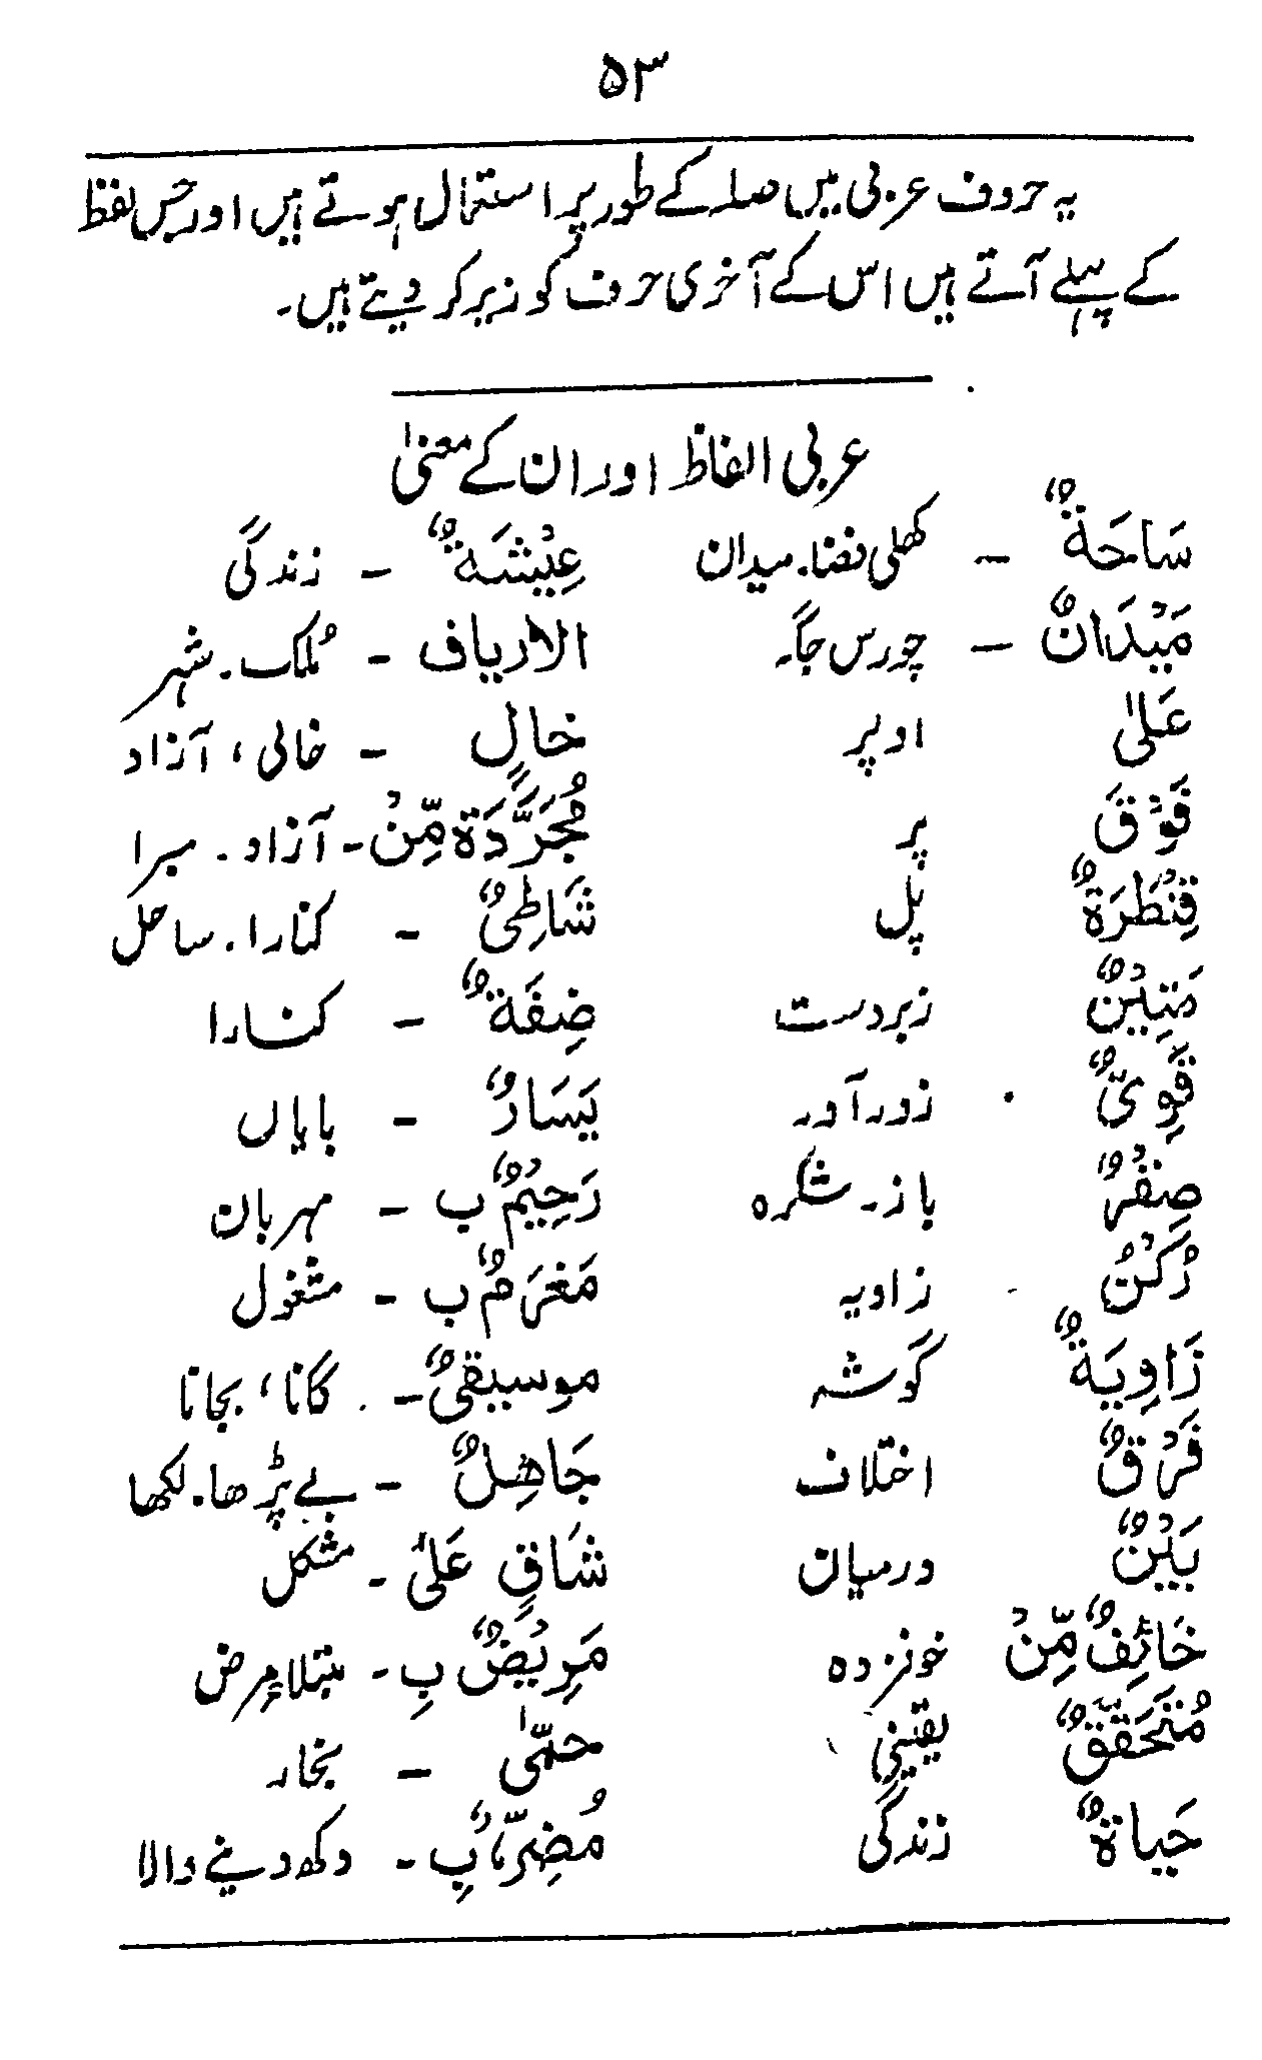 ۵۳
یہ حروف عربی میں صلہ کے طور پر استعمال ہوتے ہیں اور جس لفظ
کے پہلے آتے ہیں اس کے آخری حرف کو زیر کر دیتے ہیں۔
عربی الفاظ اور ان کے معنیٰ
سَاحَةٌ - کھلی فضا۔ میدان عِیْشَةٌ - زندگی
مَیْدَانٌ - چورس جگہ۔ الاریاف - مُلک۔ شہر
عَلیٰ اوپر خالٍ - خالی، آزاد
فَوْقَ پر مُجَرَّدَة مِّنْ - آزاد۔ مبرا
قِنْطَرَةٌ پل شَاطِیٌ - کنارا۔ ساحل
مَتِیْنٌ زبردست ضِفَةٌ - کنارا
قَوِیٌّ زور آور یَسَارٌ - بایاں
صِفْرٌ باز۔ شکرہ رَحِیْمٌ ب - مہربان
رُکْنٌ زاویہ مَغرَمٌ ب - مشغول
زَاوِیَةٌ گوشہ موسیقیٌ - گانا، بجانا
فَرْقٌ اختلاف جَاهِلٌ - بے پڑھا۔ لکھا
بَیْنٌ درمیان شَاقٍ عَلیٰ - مشکل
خَائِفٌ مِّنْ خوفزدہ مَرِیْضٌ بِ - مبتلا مرض
مُتَحَقَّقٌ یقینی حتّٰی - بخار
حَیاةٌ زندگی مُضِرٌّ بِ - دکھ دینے والا